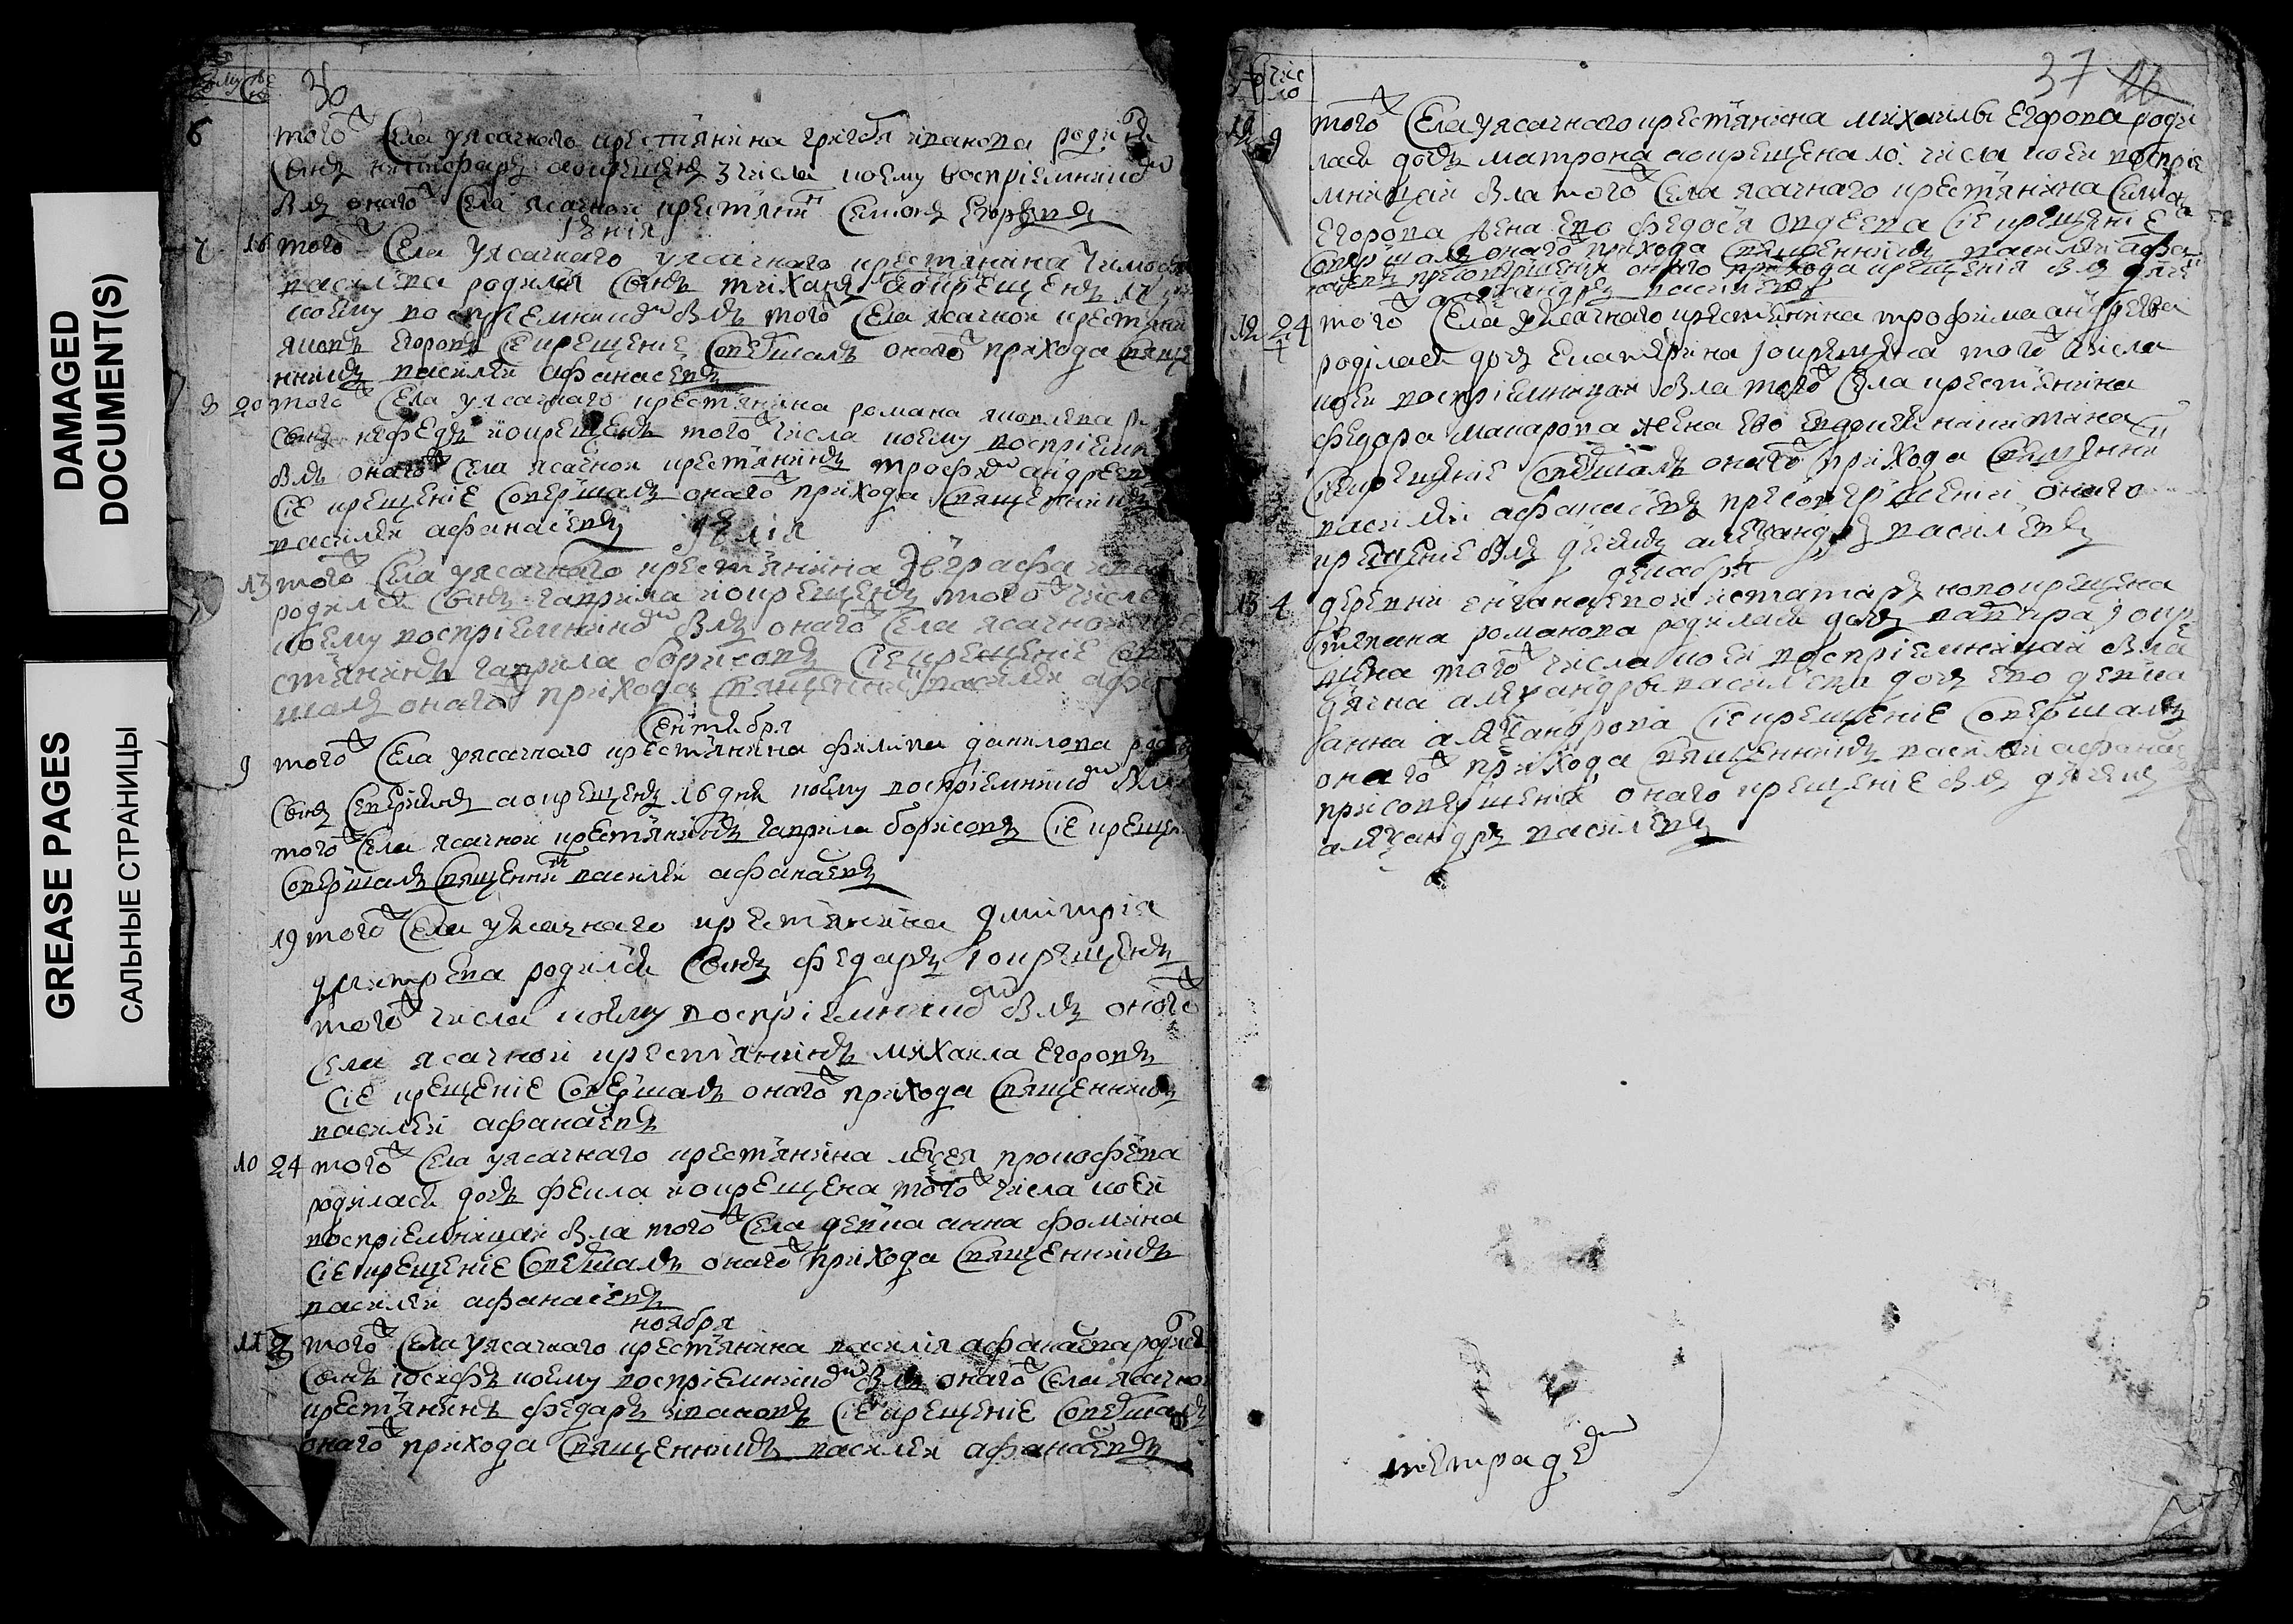 DAMAGED
DOCUMENT(S)
GREASE PAGES
САЛЬНЫЕ СТРАНИЦЫ
30
6 того ж села у ясачного крестьянина григоря иванова родился
сынъ никифоръ а окрещенъ 3 числа коему восприемником
былъ оного ж села ясачнои крестьянин
июния
7 16 того ж села у ясачного у ясачного крестьянина тимофея
василева родился сынъ тиханъ а окрещенъ 17
коему восприемником былъ того ж села ясачнои крестьяни
яковъ егоровъ сие крещение совершалъ оного ж прихода свяще
нникъ василеи афанасевъ
8 20 того ж села у ясачного крестьянина романа яковлева
сынъ нефедъ и окрещенъ того ж числа коему восприемник
былъ оного ж села ясачнои крестьянинъ трофим андреевъ
сие крещение совершалъ оного ж прихода священникъ
василеи афанасевъ
июлия
13 того ж села у ясачного крестьянина евграфа
родился сынъ гаврила и окрещенъ того ж числа
коему восприемником былъ оного ж села ясачнои кре
стьянинъ гаврила борисовъ сие крещение сове
шалъ оного ж прихода священник василеи афа
сентября
9 того ж села у ясачного крестьянина филипа данилова роди
сынъ севериянъ а окрещенъ 16 дня коему восприемником был
того ж села ясачнои крестьянинъ гаврила борисовъ сие креще
совершалъ священник василеи афанасевъ
19 того ж села у ясачного крестьянина дмитрия
дмитрева родился сынъ федаръ и окрещенъ
того ж числа коему восприемником былъ оного ж
села ясачнои крестьянинъ михаила егоровъ
сие крещение совершалъ оного ж прихода священникъ
василеи афанасевъ
10 24 того ж села у ясачного крестьянина алексея прокофева
родилась дочь фекла и окрещена того ж числа коеи
восприемницаи была того ж села девка анна фомина
сие крещение совершалъ оного ж прихода священникъ
василеи афанасевъ
ноября
11 того ж села у ясачного крестьянина василия афанасева родился
сынъ иосифъ коему восприемником былъ оного ж села ясачнои
крестьянинъ федаръ ивановъ сие крещение совершалъ
оного ж прихода священникъ василеи афанасевъ
число
37
9 того ж села у ясачного крестьянина михаилы егорова роди
лась дочь матрона а окрещена 10 числа коеи восприе
мницаи была того ж села ясачного крестьянина
егорова жена ево федося авдеева сие крещение
совершалъ оного ж прихода священникъ василеи афа
насевъ присовершении оного прихода крещения былъ дяче
александръ василевъ
12 24 того ж села у ясачного крестьянина трофима андреева
родилась дочь екатерина и окрещена того ж числа
коеи восприемницаи была того ж села крестьянина
федара макарова жена ево евдокия никитина
сие крещение совершалъ оного ж прихода священни
василеи афанасевъ пресовершении оного
крещение былъ дячекъ александръ василевъ
декабря
13 4 деревни из татаръ новокрещена
степана романова родилась дочь варвара и окре
щена того ж числа коеи восприемницаи была
дячка александры василева дочь ево девка
анна александрова сие крещение совершалъ
оного ж прихода священникъ василеи афанас
присовершении оного крещение былъ дячекъ
александръ василевъ
тетрадем